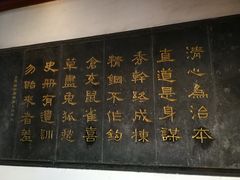 清心為治本
直道是身謀
秀幹終成棟
精鋼不作鉤
倉充鼠雀喜
草盡兔狐愁
史冊有遺訓
勿貽來者羞